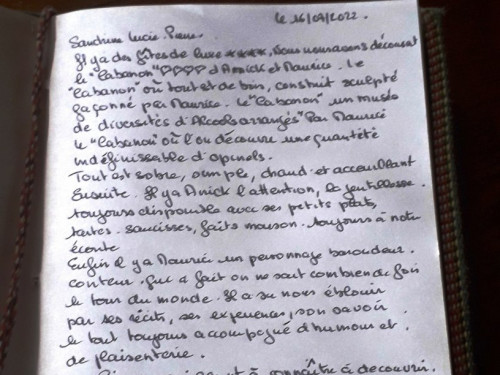 le 16/09/2022.
Sandrine Lucie. Pierre.
Il ya des gîtes de luxe ****, Nous nous avons découvert
le "Cabanon" ♡♡♡♡ d'Annick et Maurice. Le
"Cabanon" où tout est de bois, construit sculpté
façonné par Maurice. Le "Cabanon" un musée
de diversités d'Alcools arrangés "Par Maurice
le "Cabanon" où l'on découvre une quantité
indéfinissable d'opinels.
Tout est sobre, simple, chaud et accueillant
Ensuite. Il y a Anick l'attention, la gentillesse.
toujours disponible avec ses petits plats,
tartes. saucisses, faits maison. toujours à notre
écoute
Enfin il y a Maurice un personnage baroudeur.
conteur. Qui a fait on ne sait combien de fois
le tour du monde. Il a su nous éblouir
par ses récits, ses expériences, son savoir
le tout toujours accompagné d'humour et
de plaisanterie.
à connaître à decouvrir.